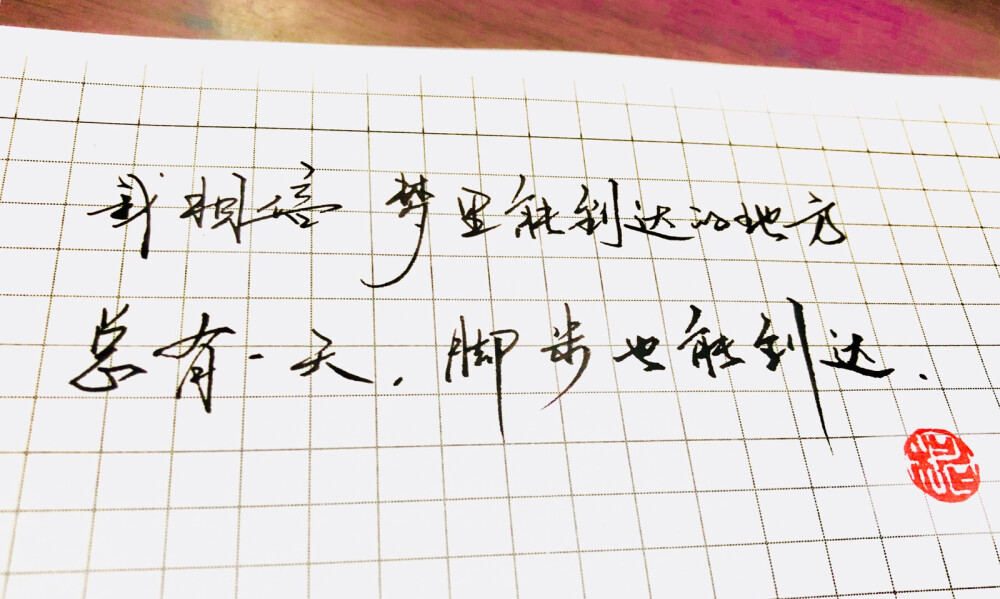 我相信 梦里能到达的地方
总有一天，脚步也能到达.